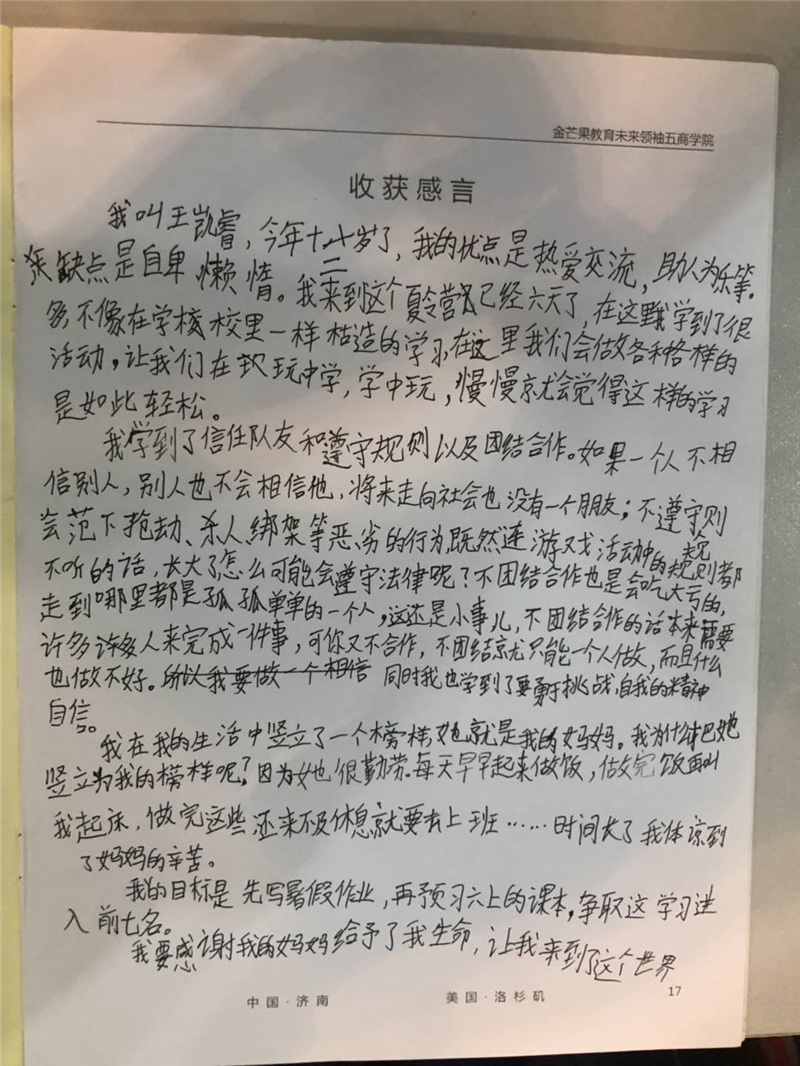 金芒果教育未来领袖五商学院
收获感言
我叫王凯睿，今年十二岁了，我的优点是热爱交流，助人为乐等。
缺点是自卑 懒惰。我来到这个夏令营已经六天了，在这里我学到了很
多不像在学校里一样枯造的学习，在这里我们会做各种各样的
活动，让我们在玩中学，学中玩，慢慢就会觉得这样的学习
是如此轻松。
我学到了信任队友和遵守规则以及团结合作。如果一个人不相
信别人，别人也不会相信他，将来走向社会也没有一个朋友；不遵守规则
会范下抢劫、杀人绑架等恶劣的行为，既然连游戏活动中的规则都
不听的话，长大了怎么可能会遵守法律呢？不团结合作也是会吃大亏的，
走到哪里都是孤孤单单的一个人，这还是小事儿，不团结合作的话本来需要
许多许多人来完成一件事，可你又不合作，不团结就只能一个人做，而且什么
也做不好。所以我要做一个相信 同时我也学到了要勇于挑战自我的精神
自信。
我在我的生活中竖立了一个榜样，她就是我的妈妈。我为什么把她
竖立为我的榜样呢？因为她很勤劳。每天早早起来做饭，做完饭面叫
我起床，做完这些还来不及休息就要去上班……时间长了我体谅到
了妈妈的辛苦。
我的目标是先写暑假作业，再预习六上的课本，争取这学习进
入前七名。
我要感谢我的妈妈给予了我生命，让我来到了这个世界
中国·济南 美国·洛杉矶 17